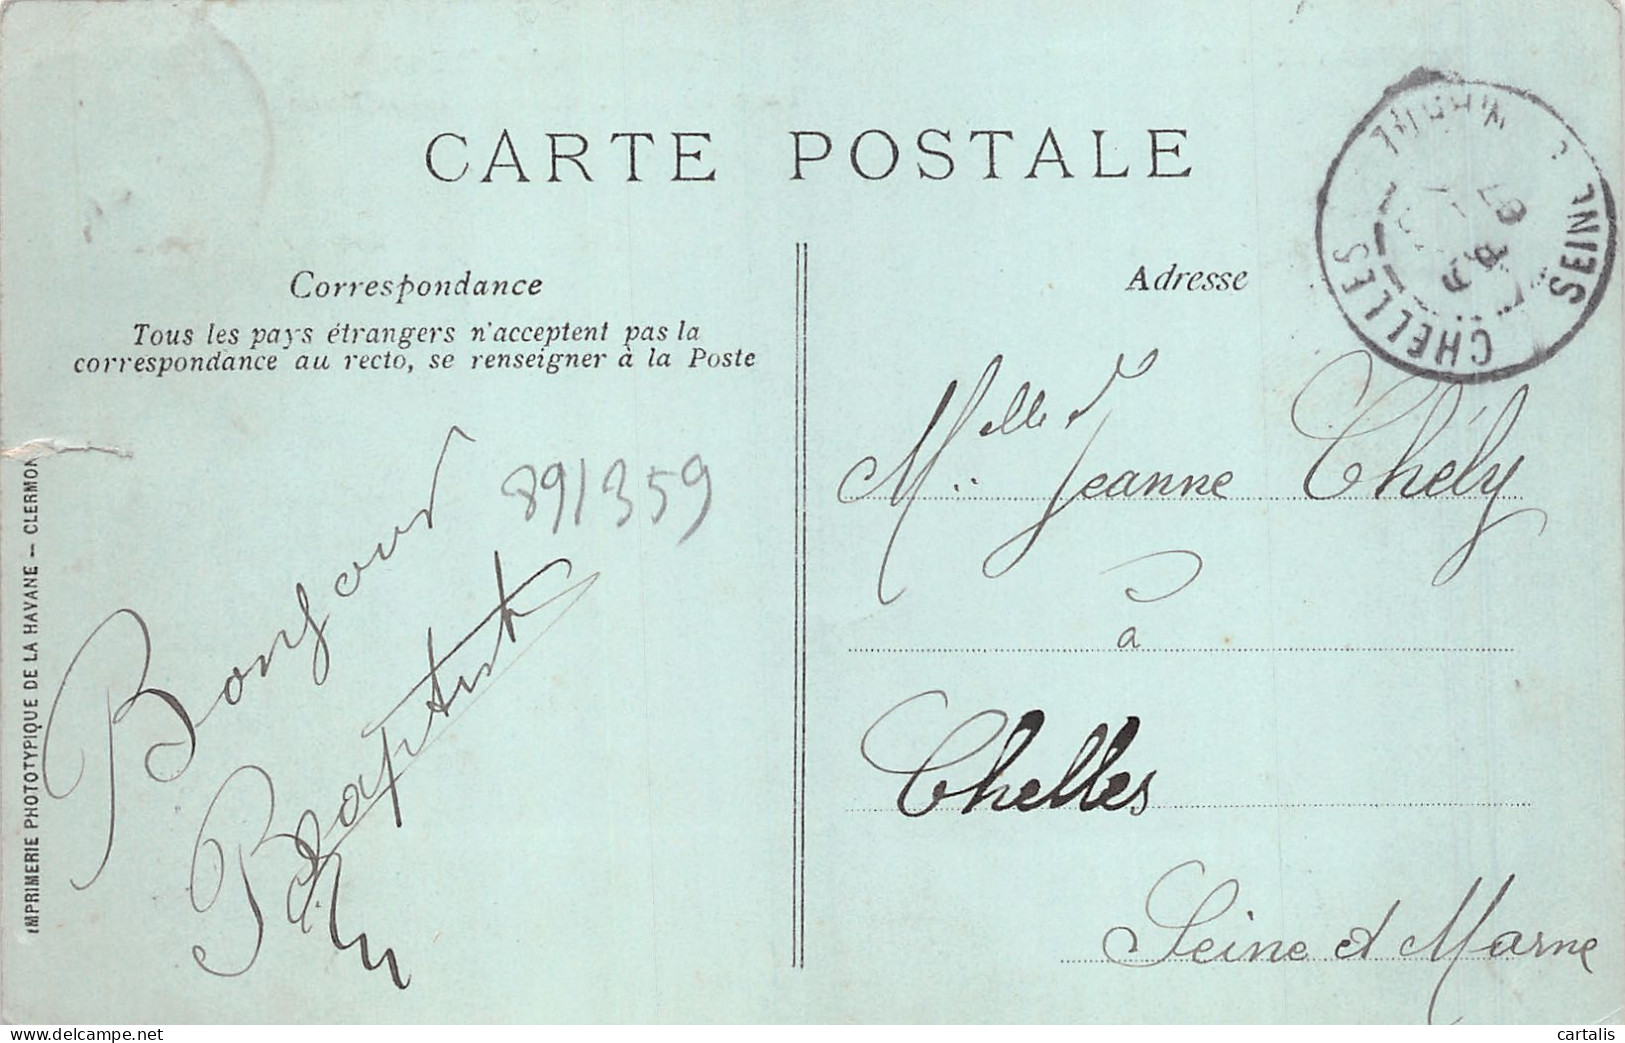 CARTE POSTALE
Correspondance
Tous les pays étrangers n'acceptent pas la
correspondance au recto, se renseigner à la Poste
Bonjour
Baptist
891359
IMPRIMERIE PHOTOTYPIQUE DE LA HAVANE – CLERMON
Adresse
Melle Jeanne Chély
à
Chelles
Seine et Marne
CHELLES
SEINE
07
www.delcampe.net
cartalis